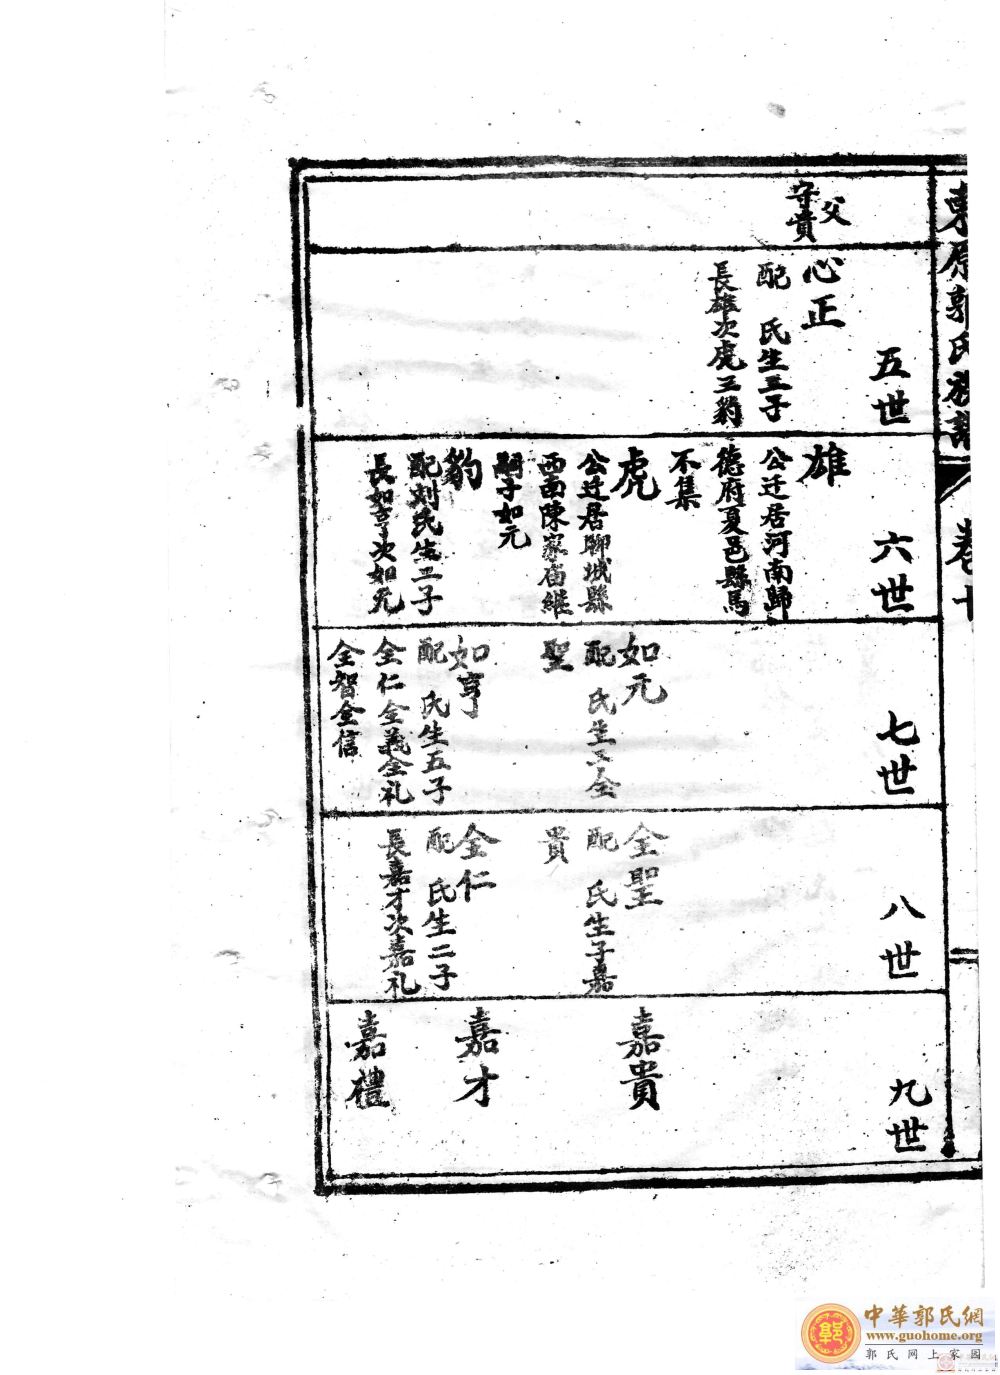 東原郭氏族譜
卷十
五世
父
守貴
心正
配 氏生三子
長雄次虎三豹
六世
雄
公迁居河南歸
德府夏邑縣馬
不集
虎
公迁居聊城縣
西南陳家庙継
嗣子如元
豹
配刘氏生二子
長如亨次如元
七世
如元
配 氏生子全
聖
如亨
配 氏生五子
全仁全義全礼
全智全信
八世
全聖
配 氏生子嘉
貴
全仁
配 氏生二子
長嘉才次嘉礼
九世
嘉貴
嘉才
嘉禮
中華郭氏網
www.guohome.org
郭氏网上家园